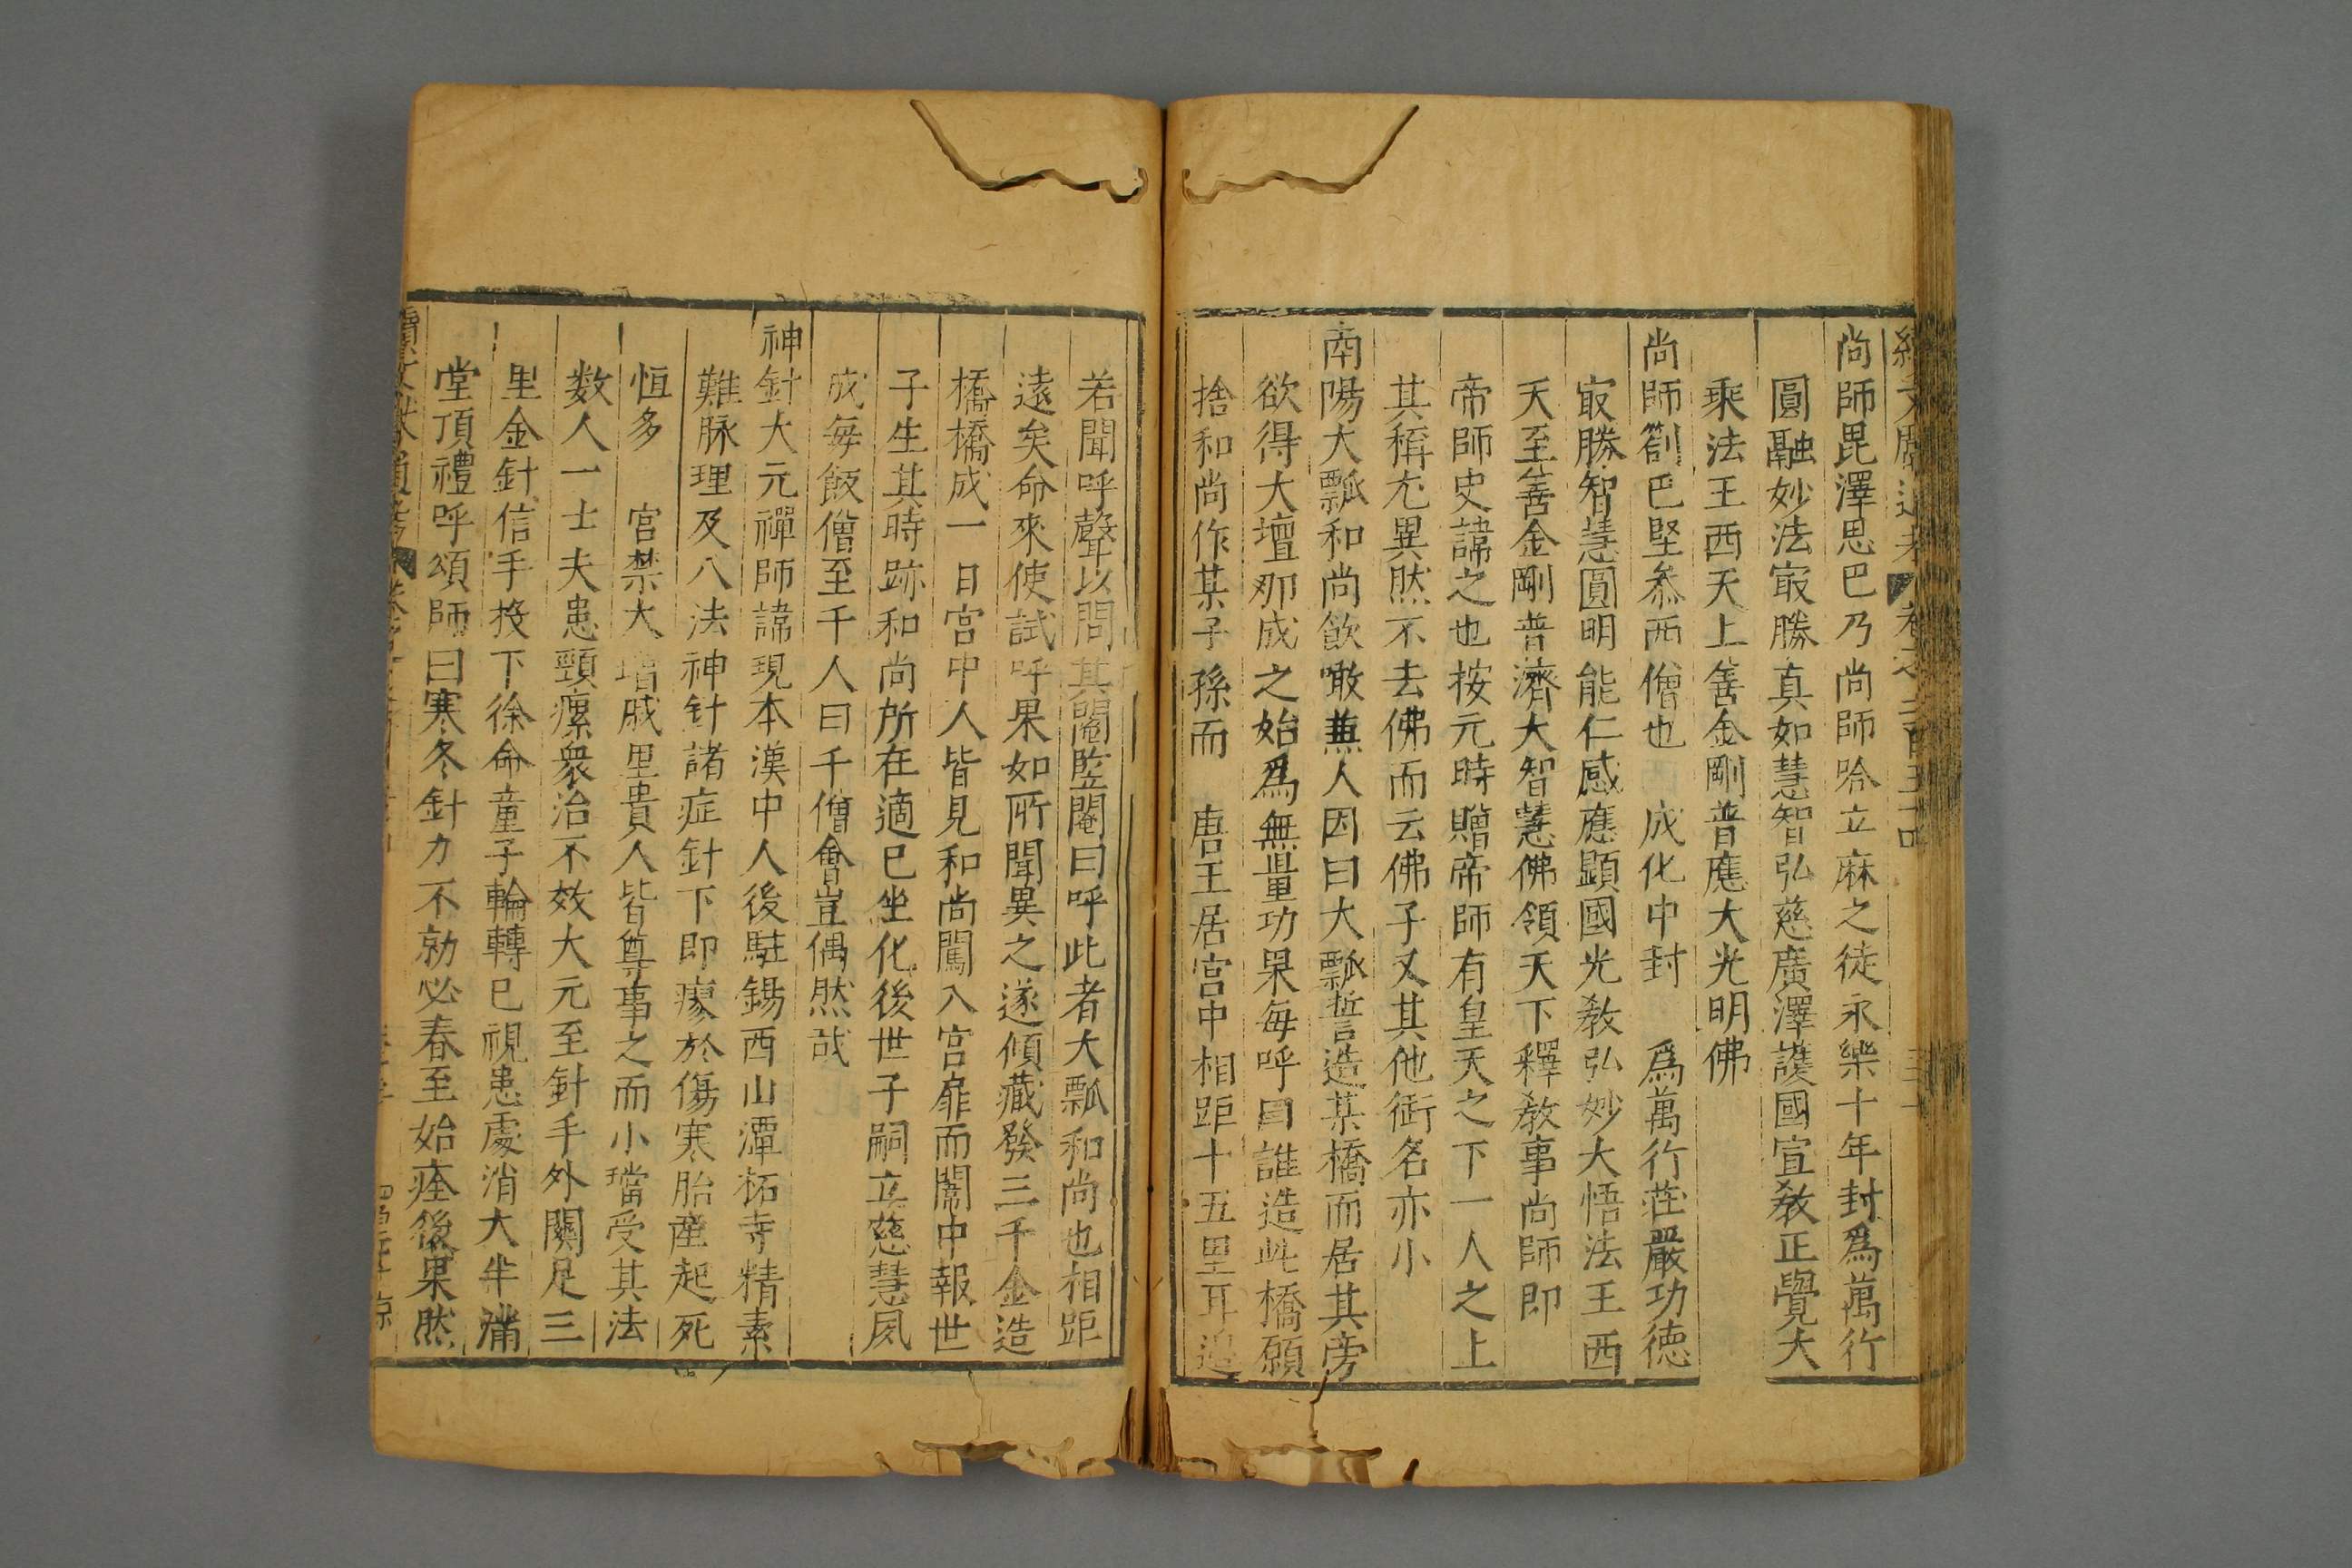 尚師毘澤思巴乃尚師哈立麻之徒永樂十年封爲萬行
圓融妙法㝡勝真如慧智弘慈廣澤護國宣教正覺大
乘法王西天上善金剛普應大光明佛
尚師劄巴堅叅西僧也 成化中封 爲萬行莊嚴功德
㝡勝智慧圓明能仁感應顯國光教弘妙大悟法王西
天至善金剛普濟大智慧佛領天下釋教事尚師即
帝師史諱之也按元時贈帝師有皇天之下一人之上
其稱尤異然不去佛而云佛子又其他銜名亦小
南陽大瓢和尚飲噉兼人因曰大瓢誓造某橋而居其旁
欲得大壇那成之始爲無量功果每呼曰誰造此橋願
捨和尚作某子孫而 唐王居宮中相距十五里耳邊
若聞呼聲以問其閹監閹曰呼此者大瓢和尚也相距
遠矣命來使試呼果如所聞異之遂傾藏發三千金造
橋橋成一日宮中人皆見和尚闖入宮扉而闈中報世
子生其時跡和尚所在適已坐化後世子嗣立慈慧夙
成每飯僧至千人曰千僧會豈偶然哉
神針大元禪師諱現本漢中人後駐錫西山潭柘寺精素
難脉理及八法神針諸症針下即瘳於傷寒胎産起死
恒多 宮禁大璫戚里貴人皆尊事之而小璫受其法
数人一士夫患頸瘰衆治不效大元至針手外關足三
里金針信手投下徐命童子輪轉已視患處消大半滿
堂頂禮呼頌師曰寒冬針力不効必春至始痊後果然